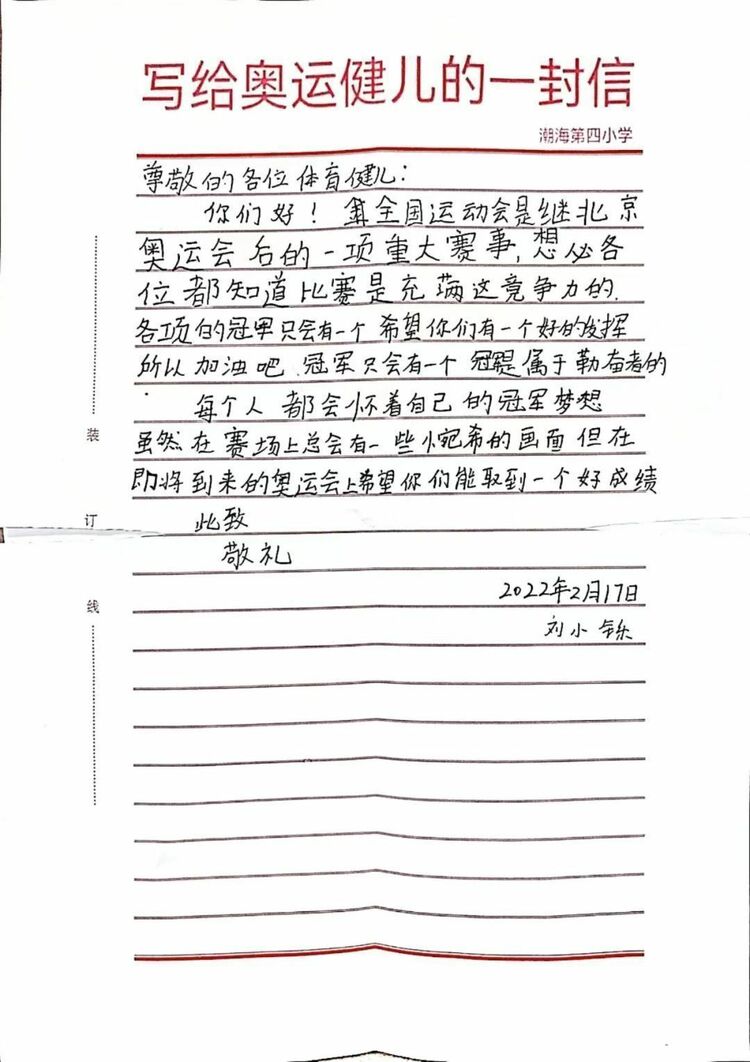 写给奥运健儿的一封信
潮海第四小学
尊敬的各位体育健儿：
你们好！ 全国运动会是继北京
奥运会后的一项重大赛事，想必各
位都知道比赛是充满这竞争力的.
各项的冠军只会有一个 希望你们有一个好的发挥
所以加油吧.冠军只会有一个 属于勤奋者的
每个人 都会怀着自己的冠军梦想
虽然在赛场上总会有一些小宛希的画面但在
即将到来的奥运会上希望你们能取到一个好成绩
此致
敬礼
2022年2月17日
刘小铄
装
订
线